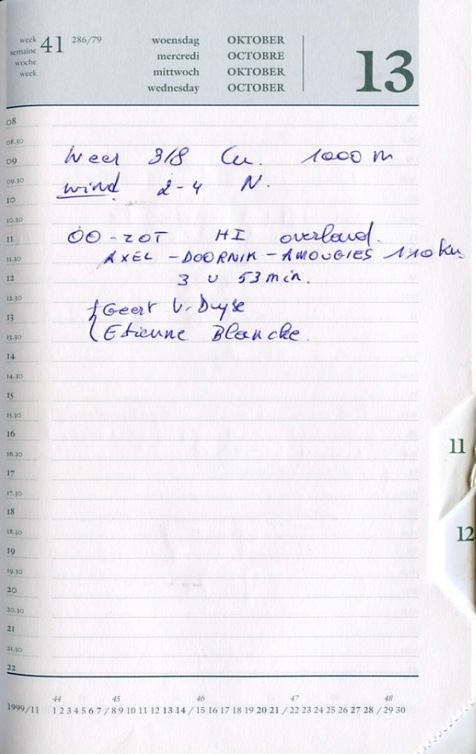 week 41 286/79
semaine
woche
week
woensdag OKTOBER
mercredi OCTOBRE
mittwoch OKTOBER
wednesday OCTOBER
13
08
08.30
09
09.30
10
10.30
11
11.30
12
12.30
13
13.30
14
14.30
15
15.30
16
16.30
17
17.30
18
18.30
19
19.30
20
20.30
21
21.30
22
Weer 3/8 Cu. 1000 m
wind 2-4 N.
OO-ZOT HI overland.
AXEL - DOORNIK - AMOUGIES 110 km
3 u 53 min.
Geert V. Duyse
Etienne Blancke.
11
12
44 45 46 47 48
1999/11 1 2 3 4 5 6 7 / 8 9 10 11 12 13 14 / 15 16 17 18 19 20 21 / 22 23 24 25 26 27 28 / 29 30